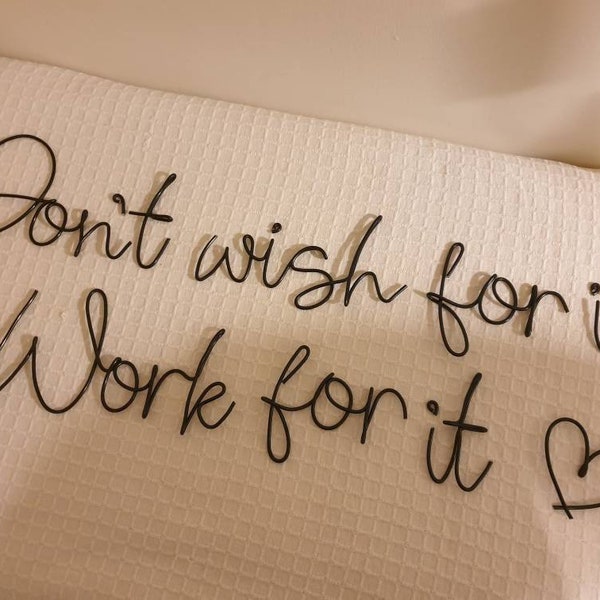 Don't wish for it
Work for it